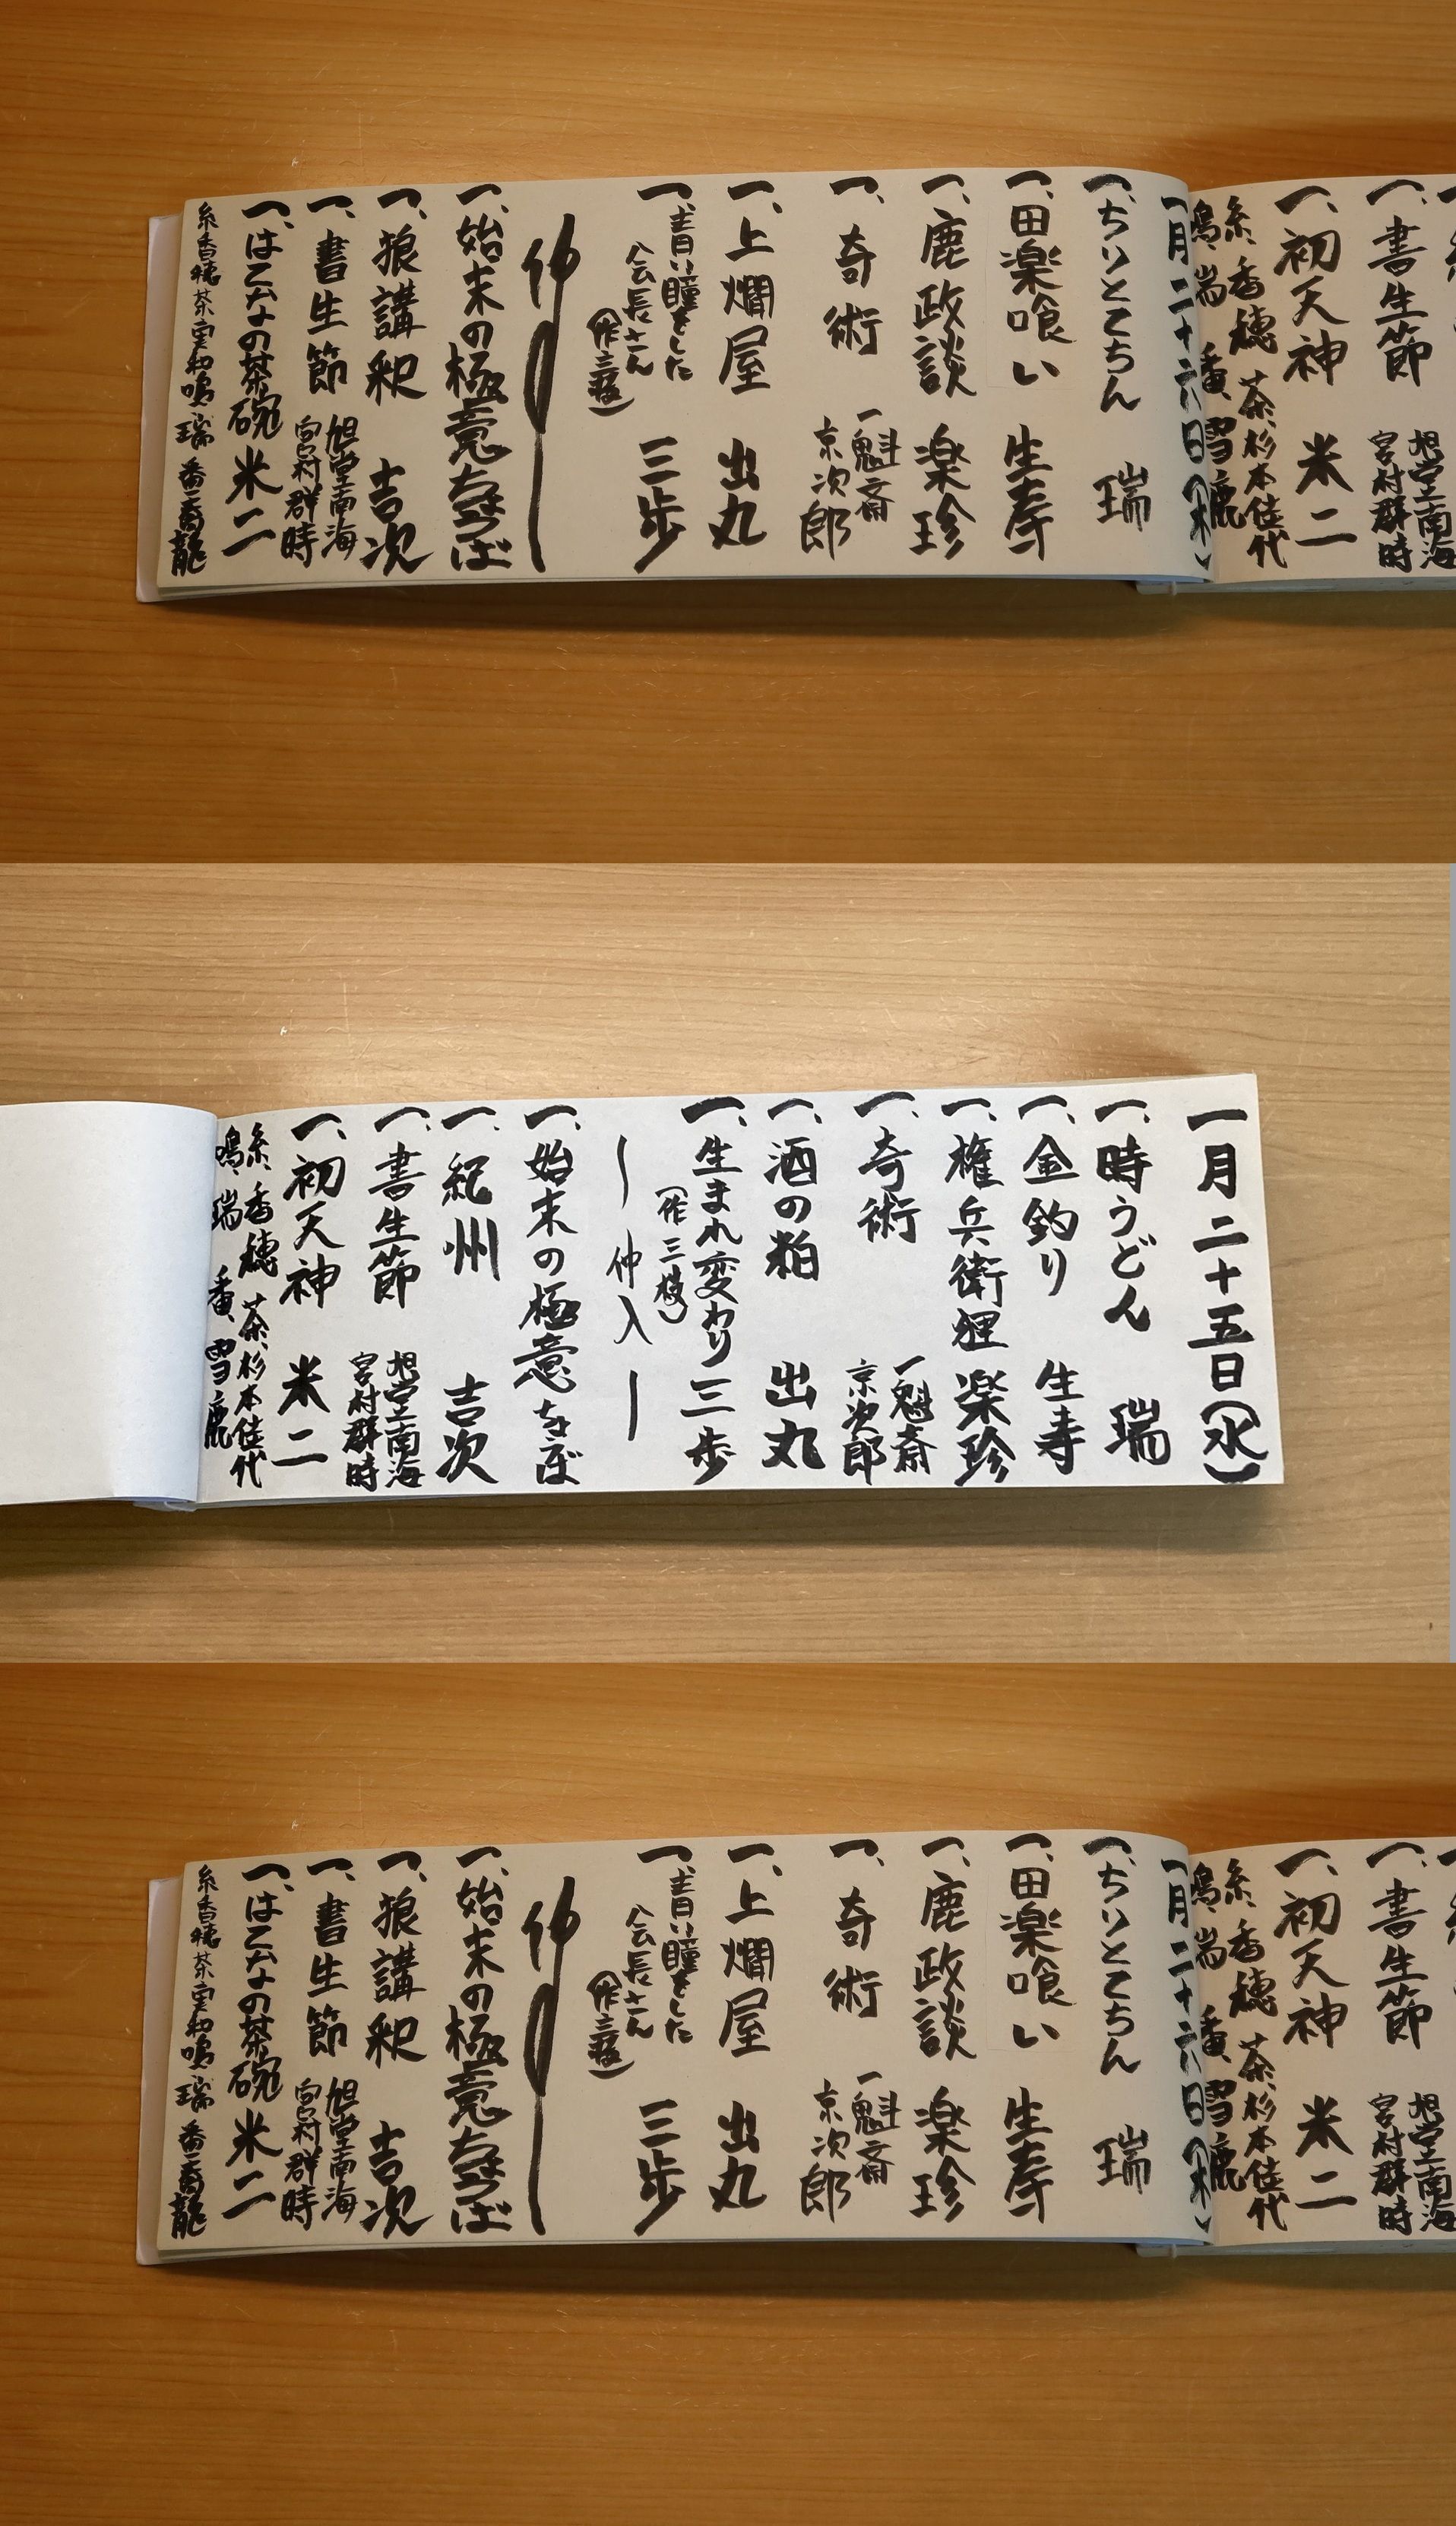 一、ちりとてちん 瑞
一、田楽喰い 生寿
一、鹿政談 楽珍
一、奇術 一魁斎
京次郎
一、上燗屋 出丸
一、青い瞳をした
会長さん
(作三枝) 三歩
仲
一、始末の極意 ちょうば
一、狼講釈 吉次
一、書生節 旭堂南海
宮村群時
一、はてなの茶碗 米二
糸 香穂 茶 鳴 瑞 番
一月二十六日(木)
糸、香穂 茶、杉本佳代
鳴、瑞 番、雪鹿
一、初天神 米二
一、書生節 旭堂南海
宮村群時
一月二十五日(水)
一、時うどん 瑞
一、金釣り 生寿
一、権兵衛狸 楽珍
一、奇術 一魁斎
京次郎
一、酒の粕 出丸
一、生まれ変わり 三歩
(作三枝)
〜仲入〜
一、始末の極意 ちょうば
一、紀州 吉次
一、書生節 旭堂南海
宮村群時
一、初天神 米二
糸、香穂 茶、杉本佳代
鳴、瑞 番、雪鹿
一、ちりとてちん 瑞
一、田楽喰い 生寿
一、鹿政談 楽珍
一、奇術 一魁斎
京次郎
一、上燗屋 出丸
一、青い瞳をした
会長さん
(作三枝) 三歩
仲
一、始末の極意 ちょうば
一、狼講釈 吉次
一、書生節 旭堂南海
宮村群時
一、はてなの茶碗 米二
糸 香穂 茶 鳴 瑞 番
一月二十六日(木)
糸、香穂 茶、杉本佳代
鳴、瑞 番、雪鹿
一、初天神 米二
一、書生節 旭堂南海
宮村群時